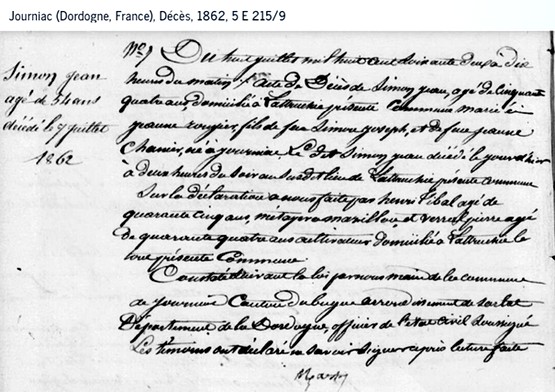 Journiac (Dordogne, France), Décès, 1862, 5 E 215/9
Simon Jean
agé de 54 ans
décédé le 7 juillet
1862
Du huit juillet mil huit cent soixante deux à dix
heures du matin, acte de Décès de Simon jean, agé de Cinquante
quatre ans domicilié à présente Commune marié à
jeanne rougier, fils de feu Simon joseph, et de feue jeanne
né à journiac. Le dit Simon jean décédé le jour d'hier
à deux heures du soir au susdit lieu de présente commune
Sur la déclaration a nous faite par henri agé de
quarante cinq ans, et pierre agé
de quarante quatre ans cultivateur domicilié à le
tout présente Commune
Constaté suivant la loi par nous maire de la commune
de journiac Canton du bugue arrondissement de sarlat
Département de la Dordogne, officier de l'état Civil soussigné
Les témoins ont déclaré ne savoir signer après lecture faite